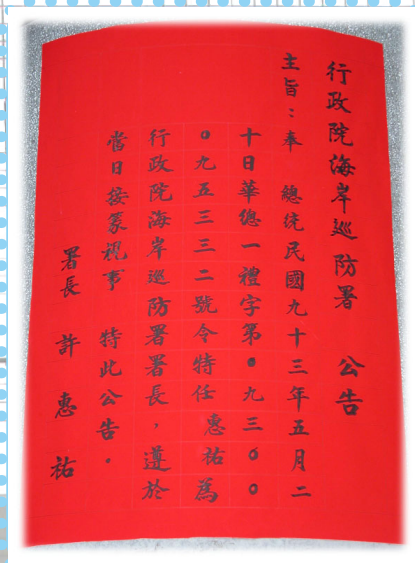 行政院海岸巡防署 公告
主旨：奉 總統民國九十三年五月二
十日華總一禮字第０九三００
０九五三三二號令特任 惠祐為
行政院海岸巡防署署長，遵於
當日接篆視事 特此公告。
署長 許惠祐